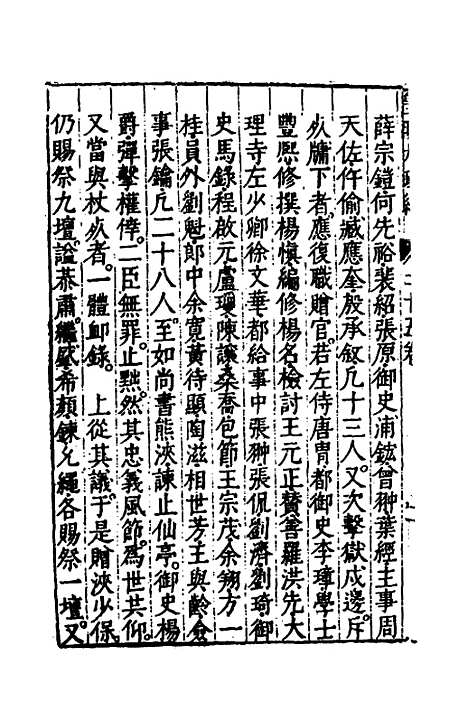 薛宗鎧何先裕裴紹張原御史浦鋐曾翀葉經主事周
天佐仵偷臧應奎殷承叙凡十三人又次擊獄戍邊斥
死牖下者應復職贈官若左侍唐胄都御史李璋學士
豐熙修撰楊慎編修楊名檢討王元正贊善羅洪先大
理寺左少卿徐文華都給事中張翀張侃劉濟劉琦御
史馬錄程啟元盧瓊陳讓桑喬包節王宗茂余翱方一
桂員外劉魁郎中余寬黃待顯陶滋相世芳王與齡僉
事張鑰凡二十八人至如尚書熊浹諫止仙亭御史楊
爵彈擊權倖二臣無罪止黜然其忠義風節為世共仰
又當與杖死者一體卹錄 上從其議于是贈浹少保
仍賜祭九壇謚恭肅繼盛希顏鍊允繩各賜祭一壇又